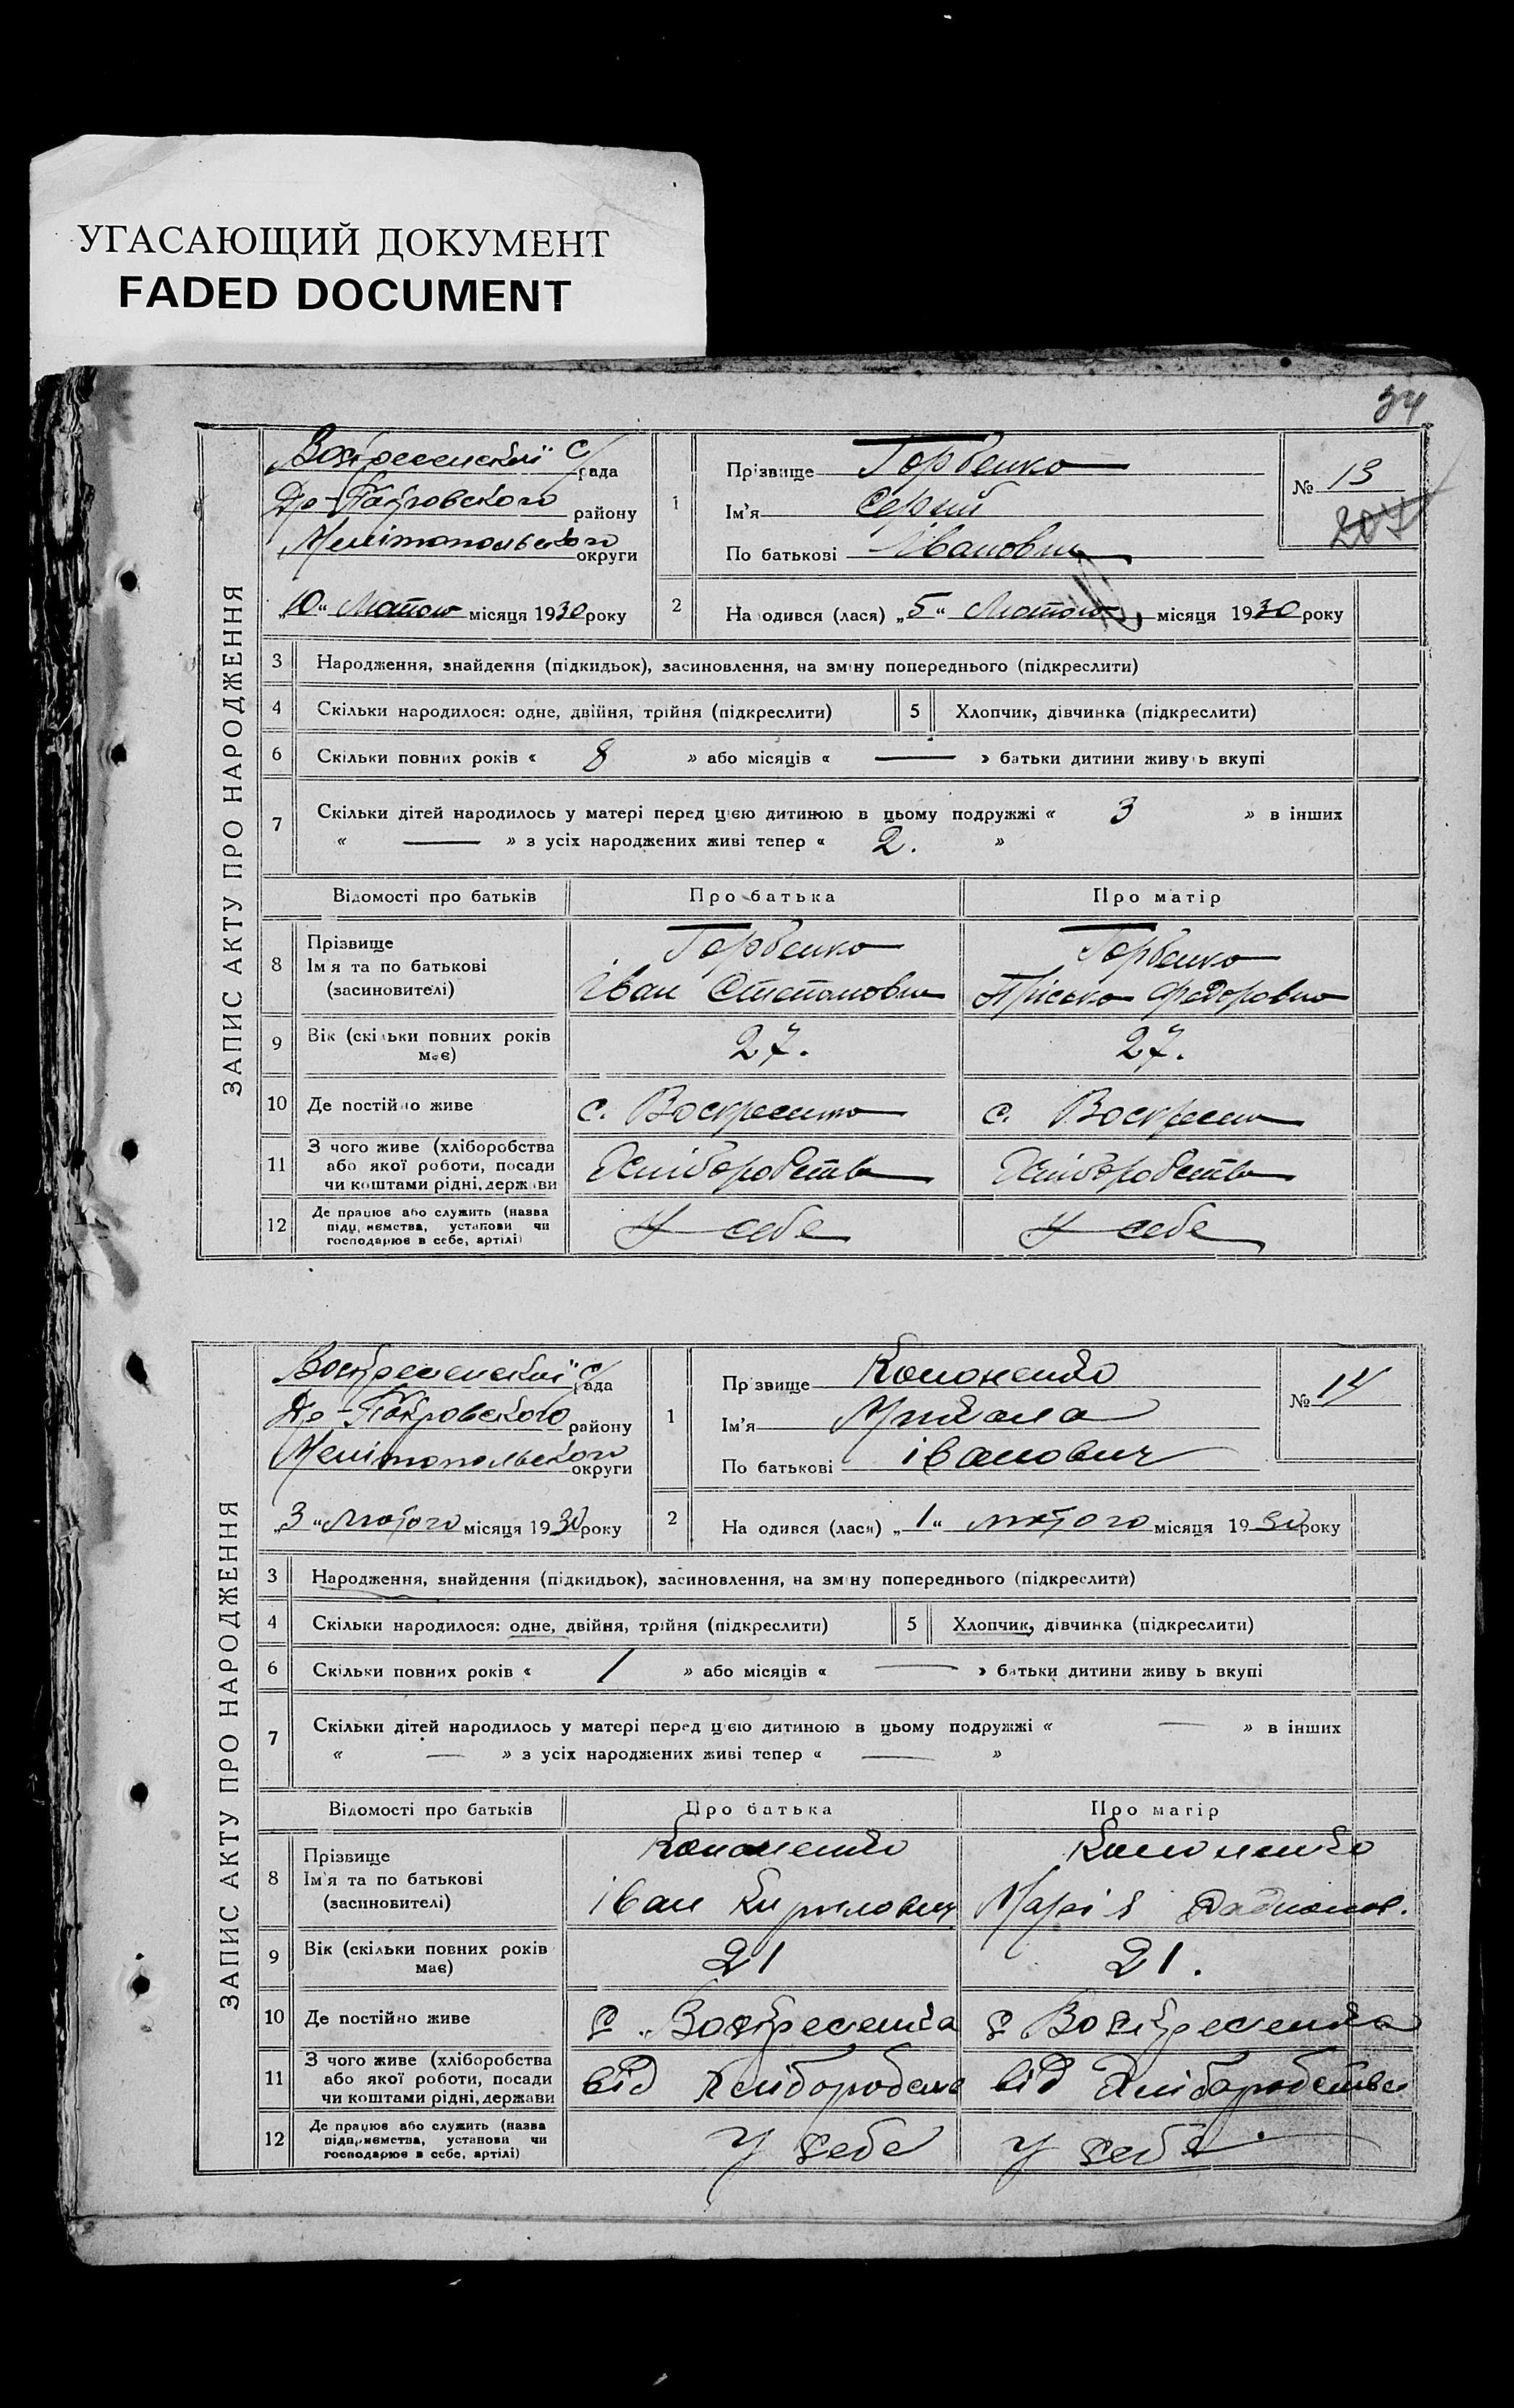 УГАСАЮЩИЙ ДОКУМЕНТ
FADED DOCUMENT
34
ЗАПИС АКТУ ПРО НАРОДЖЕННЯ
Воскресенської с/рада
Др-Покровского району
Мелітопольського округи
„10“ Лютого місяця 1930 року
1
Прізвище Горбенко
Ім'я Сергий
По батькові Іванович
№ 13
207
2
На одився (лася) „5“ Лютого місяця 1930 року
3 Народження, знайдення (підкидьок), засиновлення, на зміну попереднього (підкреслити)
4 Скільки народилося: одне, двійня, трійня (підкреслити) 5 Хлопчик, дівчинка (підкреслити)
6 Скільки повних років « 8 » або місяців « — » батьки дитини живуть вкупі
7 Скільки дітей народилось у матері перед цією дитиною в цьому подружжі « 3 » в інших
« — » з усіх народжених живі тепер « 2. »
Відомості про батьків Про батька Про матір
8 Прізвище
Ім'я та по батькові
(засиновителі)
Горбенко
Іван Степанович
Горбенко
Пріська Федоровна
9 Вік (скільки повних років
має)
27.
27.
10 Де постійно живе с. Воскресенка с. Воскресен
11 З чого живе (хліборобства
або якої роботи, посади
чи коштами рідні, держави
Хліборобств
Хліборобств
12 Де працює або служить (назва
підприємства, установи чи
господарює в себе, артілі)
У себе
У себе
ЗАПИС АКТУ ПРО НАРОДЖЕННЯ
Воскресенської с/рада
Др-Покровского району
Мелітопольського округи
„3“ Лютого місяця 1930 року
1
Прізвище Кононенко
Ім'я Микола
По батькові іванович
№ 14
2
На одився (лася) „1“ лютого місяця 1930 року
3 Народження, знайдення (підкидьок), засиновлення, на зміну попереднього (підкреслити)
4 Скільки народилося: одне, двійня, трійня (підкреслити) 5 Хлопчик, дівчинка (підкреслити)
6 Скільки повних років « 1 » або місяців « — » батьки дитини живу ь вкупі
7 Скільки дітей народилось у матері перед цією дитиною в цьому подружжі « — » в інших
« — » з усіх народжених живі тепер « — »
Відомості про батьків Про батька Про матір
8 Прізвище
Ім'я та по батькові
(засиновителі)
Кононенко
іван Кирилович
Кононенко
Марія
9 Вік (скільки повних років
має)
21
21.
10 Де постійно живе с. Воскресенка с Воскресенка
11 З чого живе (хліборобства
або якої роботи, посади
чи коштами рідні, держави
від Хліборобства
від Хліборобства
12 Де працює або служить (назва
підприємства, установи чи
господарює в себе, артілі)
У себе
У себе